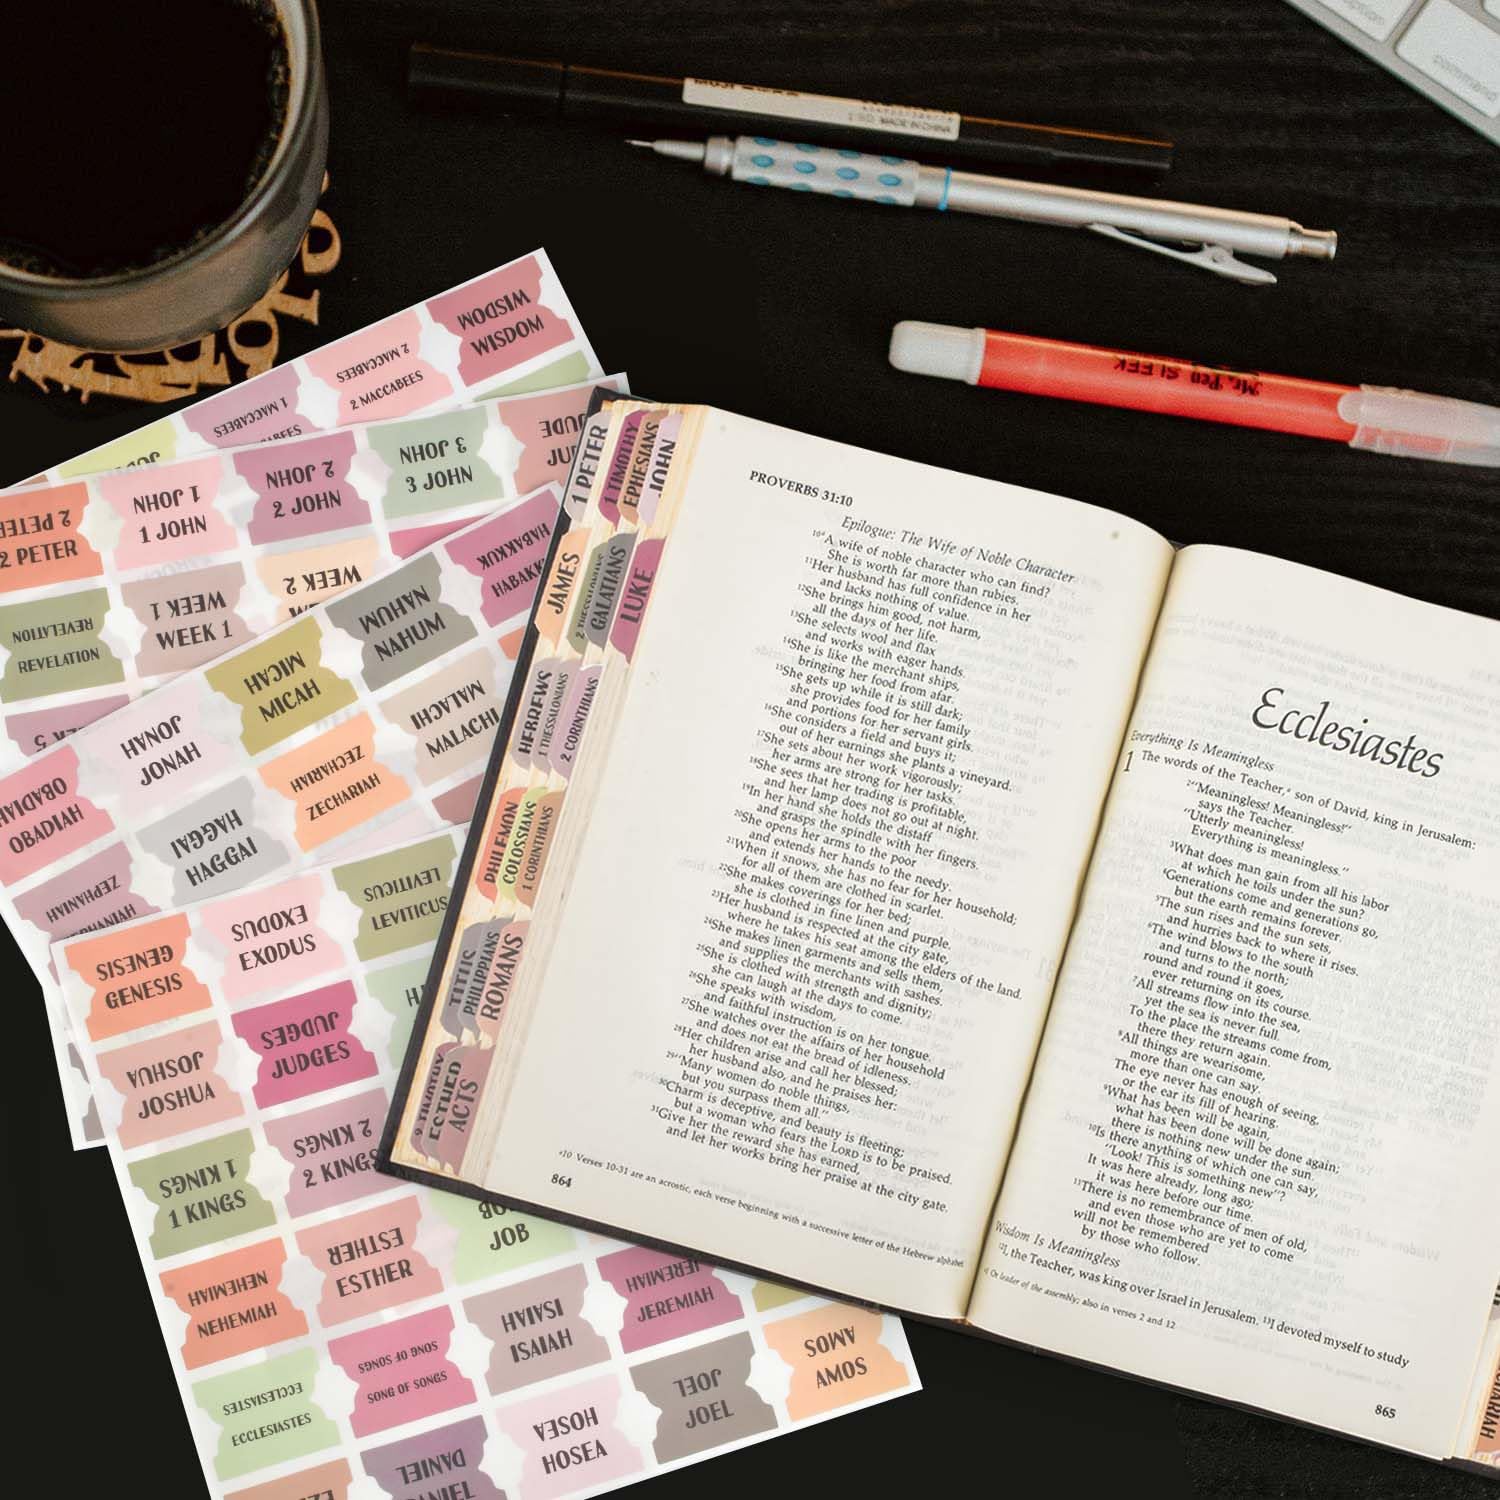 MADE IN CHINA
Mr. Pen SLEEK
WISDOM
WISDOM
2 MACCABEES
2 MACCABEES
1 MACCABEES
JUDE
3 JOHN
3 JOHN
2 JOHN
2 JOHN
1 JOHN
1 JOHN
2 PETER
2 PETER
WEEK 2
WEEK 1
WEEK 1
REVELATION
REVELATION
HABAKKUK
NAHUM
NAHUM
MICAH
MICAH
JONAH
JONAH
OBADIAH
OBADIAH
MALACHI
MALACHI
ZECHARIAH
ZECHARIAH
HAGGAI
HAGGAI
ZEPHANIAH
GENESIS
GENESIS
EXODUS
EXODUS
LEVITICUS
LEVITICUS
JOSHUA
JOSHUA
JUDGES
JUDGES
1 KINGS
1 KINGS
2 KINGS
2 KINGS
NEHEMIAH
NEHEMIAH
ESTHER
ESTHER
JOB
JOB
ECCLESIASTES
ECCLESIASTES
SONG OF SONGS
SONG OF SONGS
ISAIAH
ISAIAH
JEREMIAH
JEREMIAH
DANIEL
HOSEA
HOSEA
JOEL
JOEL
AMOS
AMOS
1 PETER
1 TIMOTHY
EPHESIANS
JOHN
JAMES
2 THESSALONIANS
GALATIANS
LUKE
HEBREWS
1 THESSALONIANS
2 CORINTHIANS
PHILEMON
COLOSSIANS
1 CORINTHIANS
TITUS
PHILIPPIANS
ROMANS
2 TIMOTHY
ESTHER
ACTS
PROVERBS 31:10
Epilogue: The Wife of Noble Character
10 A wife of noble character who can find?
She is worth far more than rubies.
11 Her husband has full confidence in her
and lacks nothing of value.
12 She brings him good, not harm,
all the days of her life.
13 She selects wool and flax
and works with eager hands.
14 She is like the merchant ships,
bringing her food from afar.
15 She gets up while it is still dark;
she provides food for her family
and portions for her servant girls.
16 She considers a field and buys it;
out of her earnings she plants a vineyard.
17 She sets about her work vigorously;
her arms are strong for her tasks.
18 She sees that her trading is profitable,
and her lamp does not go out at night.
19 In her hand she holds the distaff
and grasps the spindle with her fingers.
20 She opens her arms to the poor
and extends her hands to the needy.
21 When it snows, she has no fear for her household;
for all of them are clothed in scarlet.
22 She makes coverings for her bed;
she is clothed in fine linen and purple.
23 Her husband is respected at the city gate,
where he takes his seat among the elders of the land.
24 She makes linen garments and sells them,
and supplies the merchants with sashes.
25 She is clothed with strength and dignity;
she can laugh at the days to come.
26 She speaks with wisdom,
and faithful instruction is on her tongue.
27 She watches over the affairs of her household
and does not eat the bread of idleness.
28 Her children arise and call her blessed;
her husband also, and he praises her:
29 "Many women do noble things,
but you surpass them all."
30 Charm is deceptive, and beauty is fleeting;
but a woman who fears the LORD is to be praised.
31 Give her the reward she has earned,
and let her works bring her praise at the city gate.
a10 Verses 10-31 are an acrostic, each verse beginning with a successive letter of the Hebrew alphabet
864
Ecclesiastes
Everything Is Meaningless
1 The words of the Teacher,a son of David, king in Jerusalem:
2 "Meaningless! Meaningless!"
says the Teacher.
"Utterly meaningless!
Everything is meaningless."
3 What does man gain from all his labor
at which he toils under the sun?
4 Generations come and generations go,
but the earth remains forever.
5 The sun rises and the sun sets,
and hurries back to where it rises.
6 The wind blows to the south
and turns to the north;
round and round it goes,
ever returning on its course.
7 All streams flow into the sea,
yet the sea is never full.
To the place the streams come from,
there they return again.
8 All things are wearisome,
more than one can say.
The eye never has enough of seeing,
or the ear its fill of hearing.
9 What has been will be again,
what has been done will be done again;
there is nothing new under the sun.
10 Is there anything of which one can say,
"Look! This is something new"?
It was here already, long ago;
it was here before our time.
11 There is no remembrance of men of old,
and even those who are yet to come
will not be remembered
by those who follow.
Wisdom Is Meaningless
12 I, the Teacher, was king over Israel in Jerusalem. 13 I devoted myself to study
a1 Or leader of the assembly; also in verses 2 and 12
865